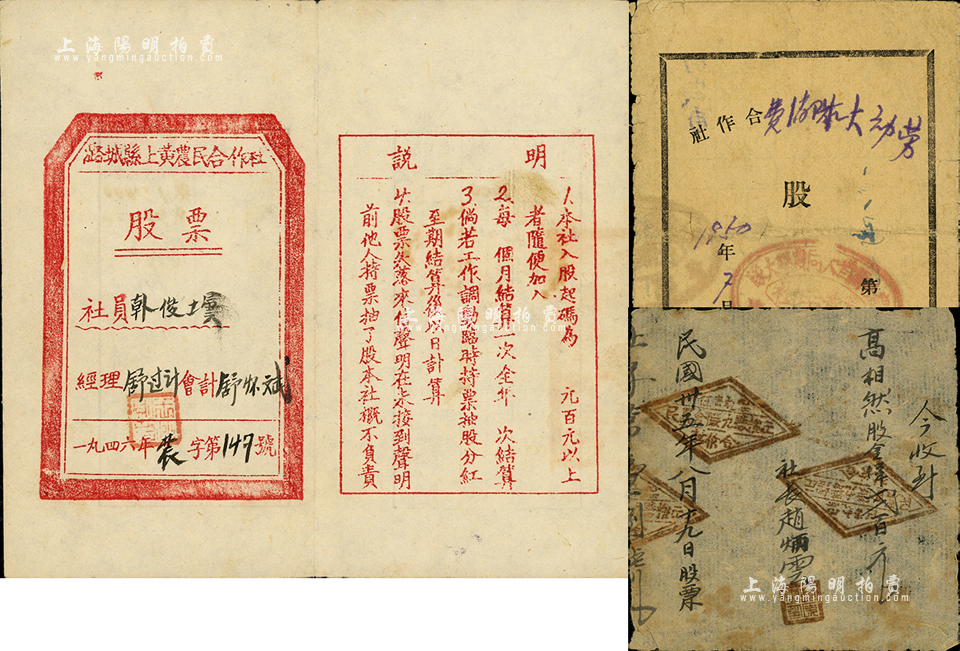 上海陽明拍賣
www.yangmingauction.com
潞城縣上黃農民合作社
股票
社員韓俊
經理舒过計會計舒怀斌
一九四六年裝字第149號
說明
1.本社入股起碼為 元百元以上
者隨便加入
2.每 個月結算一次全年 次結算
3.倘若工作調 臨時持票抽股分紅
至期結算後以日計算
4.股票失落來信聲明在未接到聲明
前他人持票抽了股本社概不負責
上海陽明拍賣
www.yangmingauction.com
上海陽明拍賣
www.yangmingauction.com
勞动大
合作社
股
1950年7日
第
今收到
高相然股金 貳百元
社長趙炳雲
民國卅五年八月十九日股票
上海陽明拍賣
www.yangmingauction.com